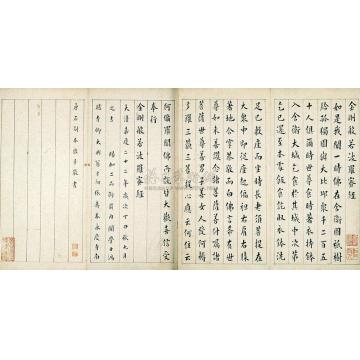 金剛般若波羅蜜經
如是我聞一時佛在舍衛國祇樹
給孤獨園與大比丘眾千二百五
十人俱爾時世尊食時著衣持鉢
入舍衛大城乞食於其城中次第
乞已還至本處飯食訖收衣鉢洗
足已敷座而坐時長老須菩提在
大眾中即從座起偏袒右肩右膝
著地合掌恭敬而白佛言希有世
尊如來善護念諸菩薩善付囑諸
菩薩世尊善男子善女人發阿耨
多羅三藐三菩提心應云何住云
阿脩羅聞佛所說皆大歡喜信受
奉行
金剛般若波羅蜜經
大清嘉慶二十二年歲次丁丑秋七月